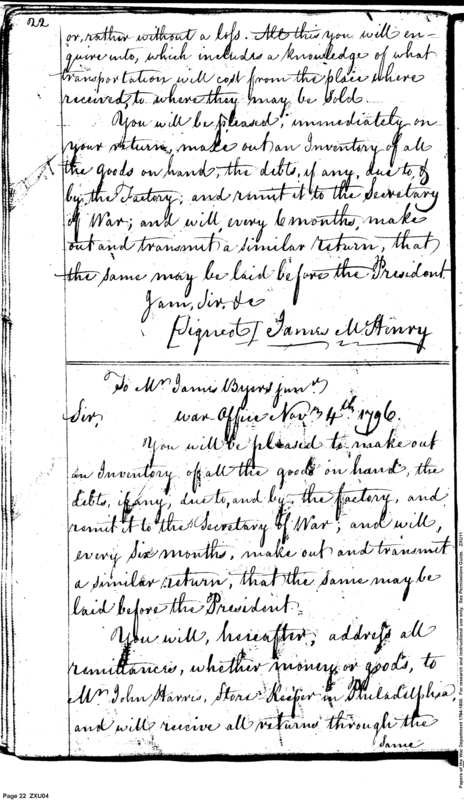 22
or, rather without a loss. All this you will en-
quire into, which includes a knowledge of what
transportation will cost from the place where
received, to where they may be sold.
You will be pleased, immediately on
your return, make out an Inventory of all
the goods on hand, the debts, if any, due to, &
by, the Factory; and remit it to the Secretary
of War; and will, every 6 months, make
out and transmit a similar return, that
the same may be laid before the President.
I am, Sir, &c
[Signed] James McHenry
To Mr James Byers junr
Sir, War Office Novr 4th 1796.
You will be pleased to make out
an Inventory of all the goods on hand, the
debts, if any, due to, and by, the factory, and
remit it to the Secretary of War; and will,
every Six months, make out and transmit
a similar return, that the same may be
laid before the President.
You will, hereafter, address all
remittances, whether money or goods, to
Mr John Harris, Store-Keeper in Philadelphia
and will receive all returns through the
same
Page 22 ZXU04